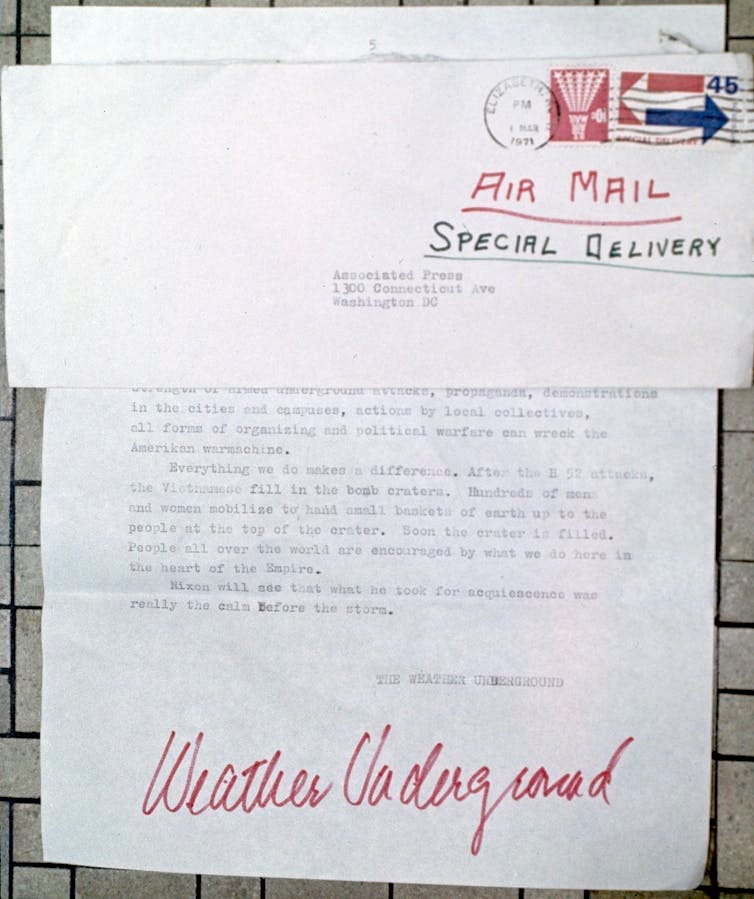 5
ELIZABETH, N.J.
PM
1 MAR
1971
10¢
U.S. AIR MAIL
45
SPECIAL DELIVERY
AIR MAIL
SPECIAL DELIVERY
Associated Press
1300 Connecticut Ave
Washington DC
strength of armed underground attacks, propaganda, demonstrations
in the cities and campuses, actions by local collectives,
all forms of organizing and political warfare can wreck the
Amerikan warmachine.
Everything we do makes a difference. After the B 52 attacks,
the Vietnamese fill in the bomb craters. Hundreds of men
and women mobilize to hand small baskets of earth up to the
people at the top of the crater. Soon the crater is filled.
People all over the world are encouraged by what we do here in
the heart of the Empire.
Nixon will see that what he took for acquiescence was
really the calm before the storm.
THE WEATHER UNDERGROUND
Weather Underground